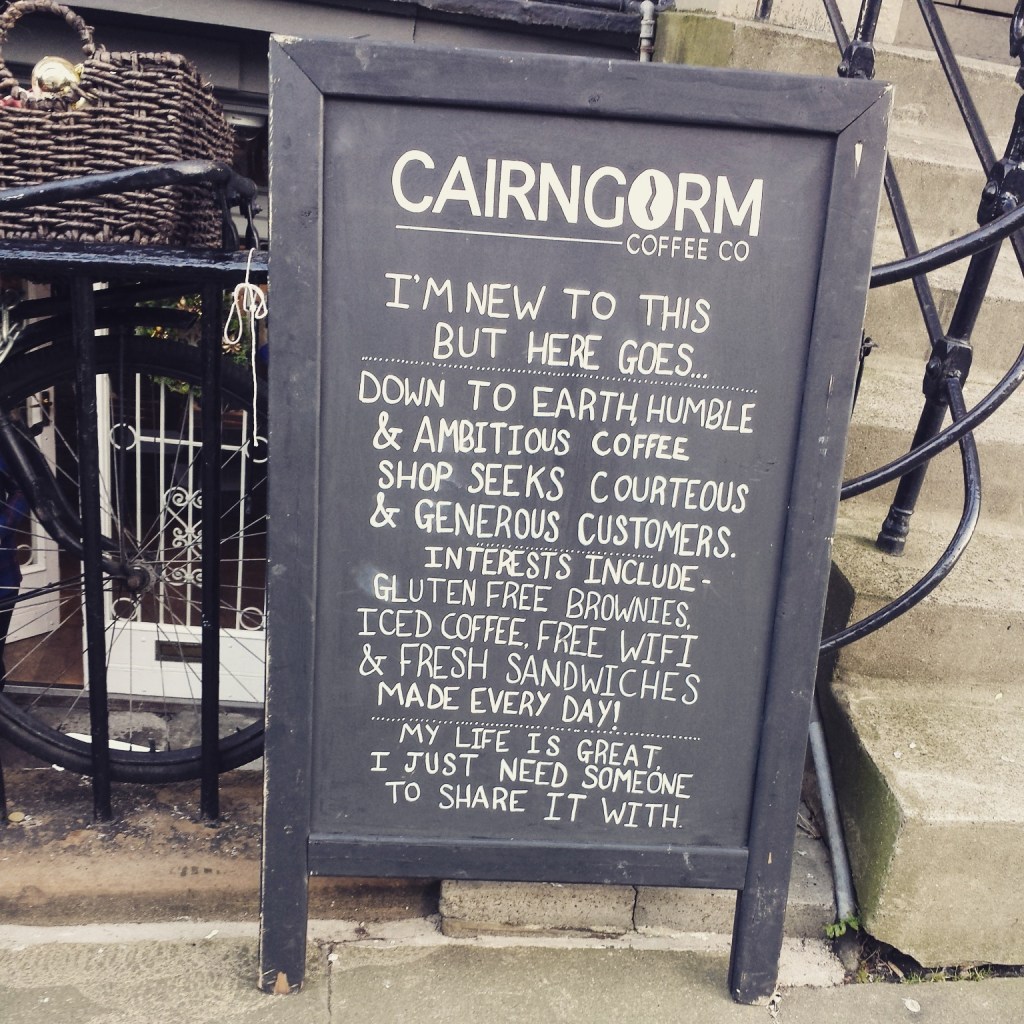 CAIRNGORM
COFFEE CO
I'M NEW TO THIS
BUT HERE GOES...
DOWN TO EARTH, HUMBLE
& AMBITIOUS COFFEE
SHOP SEEKS COURTEOUS
& GENEROUS CUSTOMERS.
INTERESTS INCLUDE-
GLUTEN FREE BROWNIES,
ICED COFFEE, FREE WIFI
& FRESH SANDWICHES
MADE EVERY DAY!
MY LIFE IS GREAT,
I JUST NEED SOMEONE
TO SHARE IT WITH.